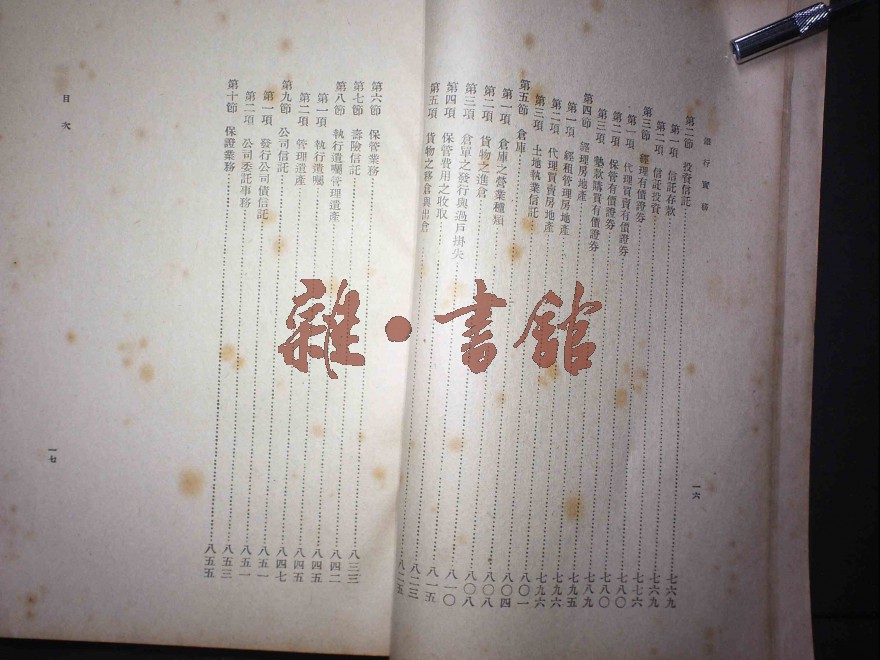 銀行實務
第二節 投資信託……七六九
第一項 信託存款……七六九
第二項 信託投資……七七六
第三節 經理有價證券……七八〇
第一項 代理買賣有價證券……七八〇
第二項 保管有價證券……七八九
第三項 墊款購買有價證券……七九五
第四節 經理房地產……七九六
第一項 經租管理房地產……七九六
第二項 代理買賣房地產……八〇一
第三項 土地執業信託……八〇四
第五節 倉庫……八〇八
第一項 倉庫之營業種類……八〇八
第二項 貨物之進倉……八一〇
第三項 倉單之發行與過戶掛失……八一五
第四項 保管費用之收取……八二三
第五項 貨物之移倉與出倉……八二五
一六
第六節 保管業務……八三三
第七節 壽險信託……八四二
第八節 執行遺囑管理遺產……八四五
第一項 執行遺囑……八四五
第二項 管理遺產……八四七
第九節 公司信託……八五一
第一項 發行公司債信託……八五一
第二項 公司委託事務……八五三
第十節 保證業務……八五五
目次
一七
雜·書館